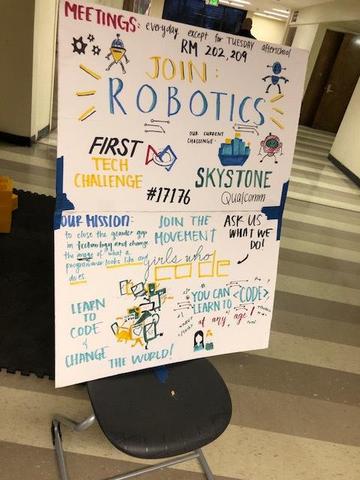 MEETINGS: everyday except for TUESDAY afterschool
RM 202, 209
JOIN:
ROBOTICS
FIRST
TECH
CHALLENGE
#17176
OUR CURRENT
CHALLENGE:
SKYSTONE
Qualcomm
OUR MISSION:
to close the gender gap
in technology and change
the image of what a
programmer looks like and
does
JOIN THE
MOVEMENT
girls who
code
ASK US
WHAT WE
DO!
LEARN
TO
CODE
&
CHANGE THE WORLD!
YOU CAN
LEARN TO <CODE>
at any age!